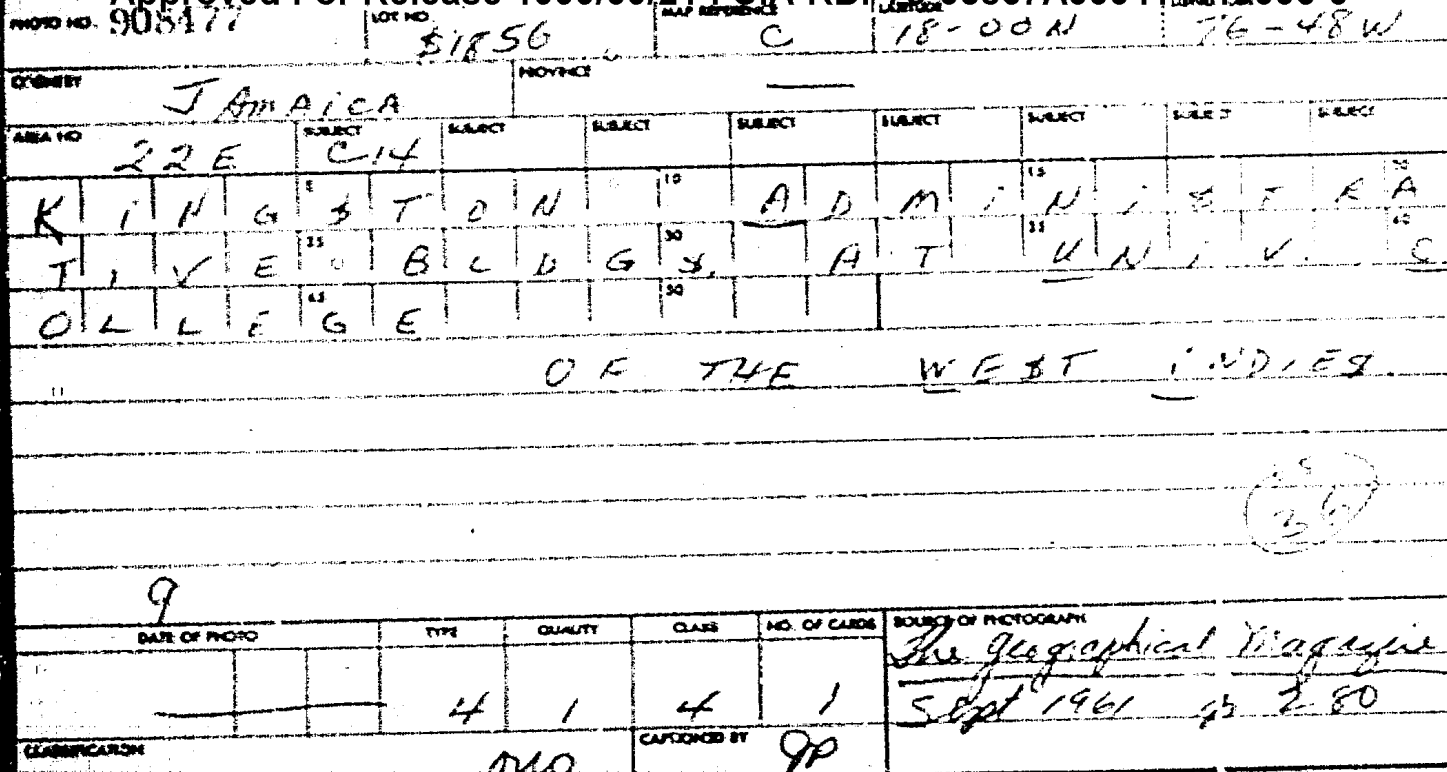 Approved For Release
PHOTO NO. 908477 LOT NO $1856 MAP REFERENCE C LATITUDE 18-00N 76-48W
COUNTRY JAMAiCA PROVINCE —
AREA NO 22E SUBJECT C14 SUBJECT SUBJECT SUBJECT SUBJECT SUBJECT SUBJECT SUBJECT
KiNG$TON ADMiNi$TRA
TIVE BLDG$. AT UNiV. C
OLLEGE
OF THE WE$T iNDiE$.
36
9
DATE OF PHOTO TYPE QUALITY CLASS NO. OF CARDS SOURCE OF PHOTOGRAPH
The Geographical Magazine
— 4 1 4 1 Sept 1961 280
CLASSIFICATION CAPTIONED BY